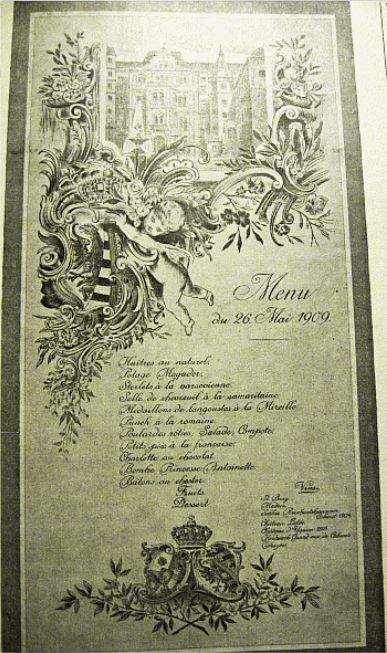 Menu
du 26. Mai 1909.
Huîtres au naturel.
Potage Mogador.
Sterlets à la varsovienne.
Selle de chevreuil à la samaritaine
Médaillons de langoustes à la Mireille
Punch à la romaine.
Poulardes rôties, Salade, Compote.
Petits pois à la française.
Charlotte au chocolat.
Bombe Princesse Antoinette.
Bâtons au chester.
Fruits.
Dessert.
Vins
Madère
Château
Château d'Yquem